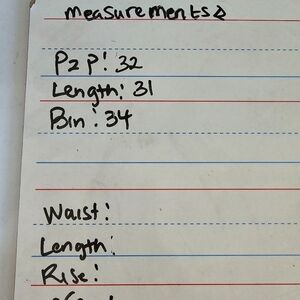 measurements
P2P: 32
Length: 31
Bin: 34
Waist:
Length:
Rise: